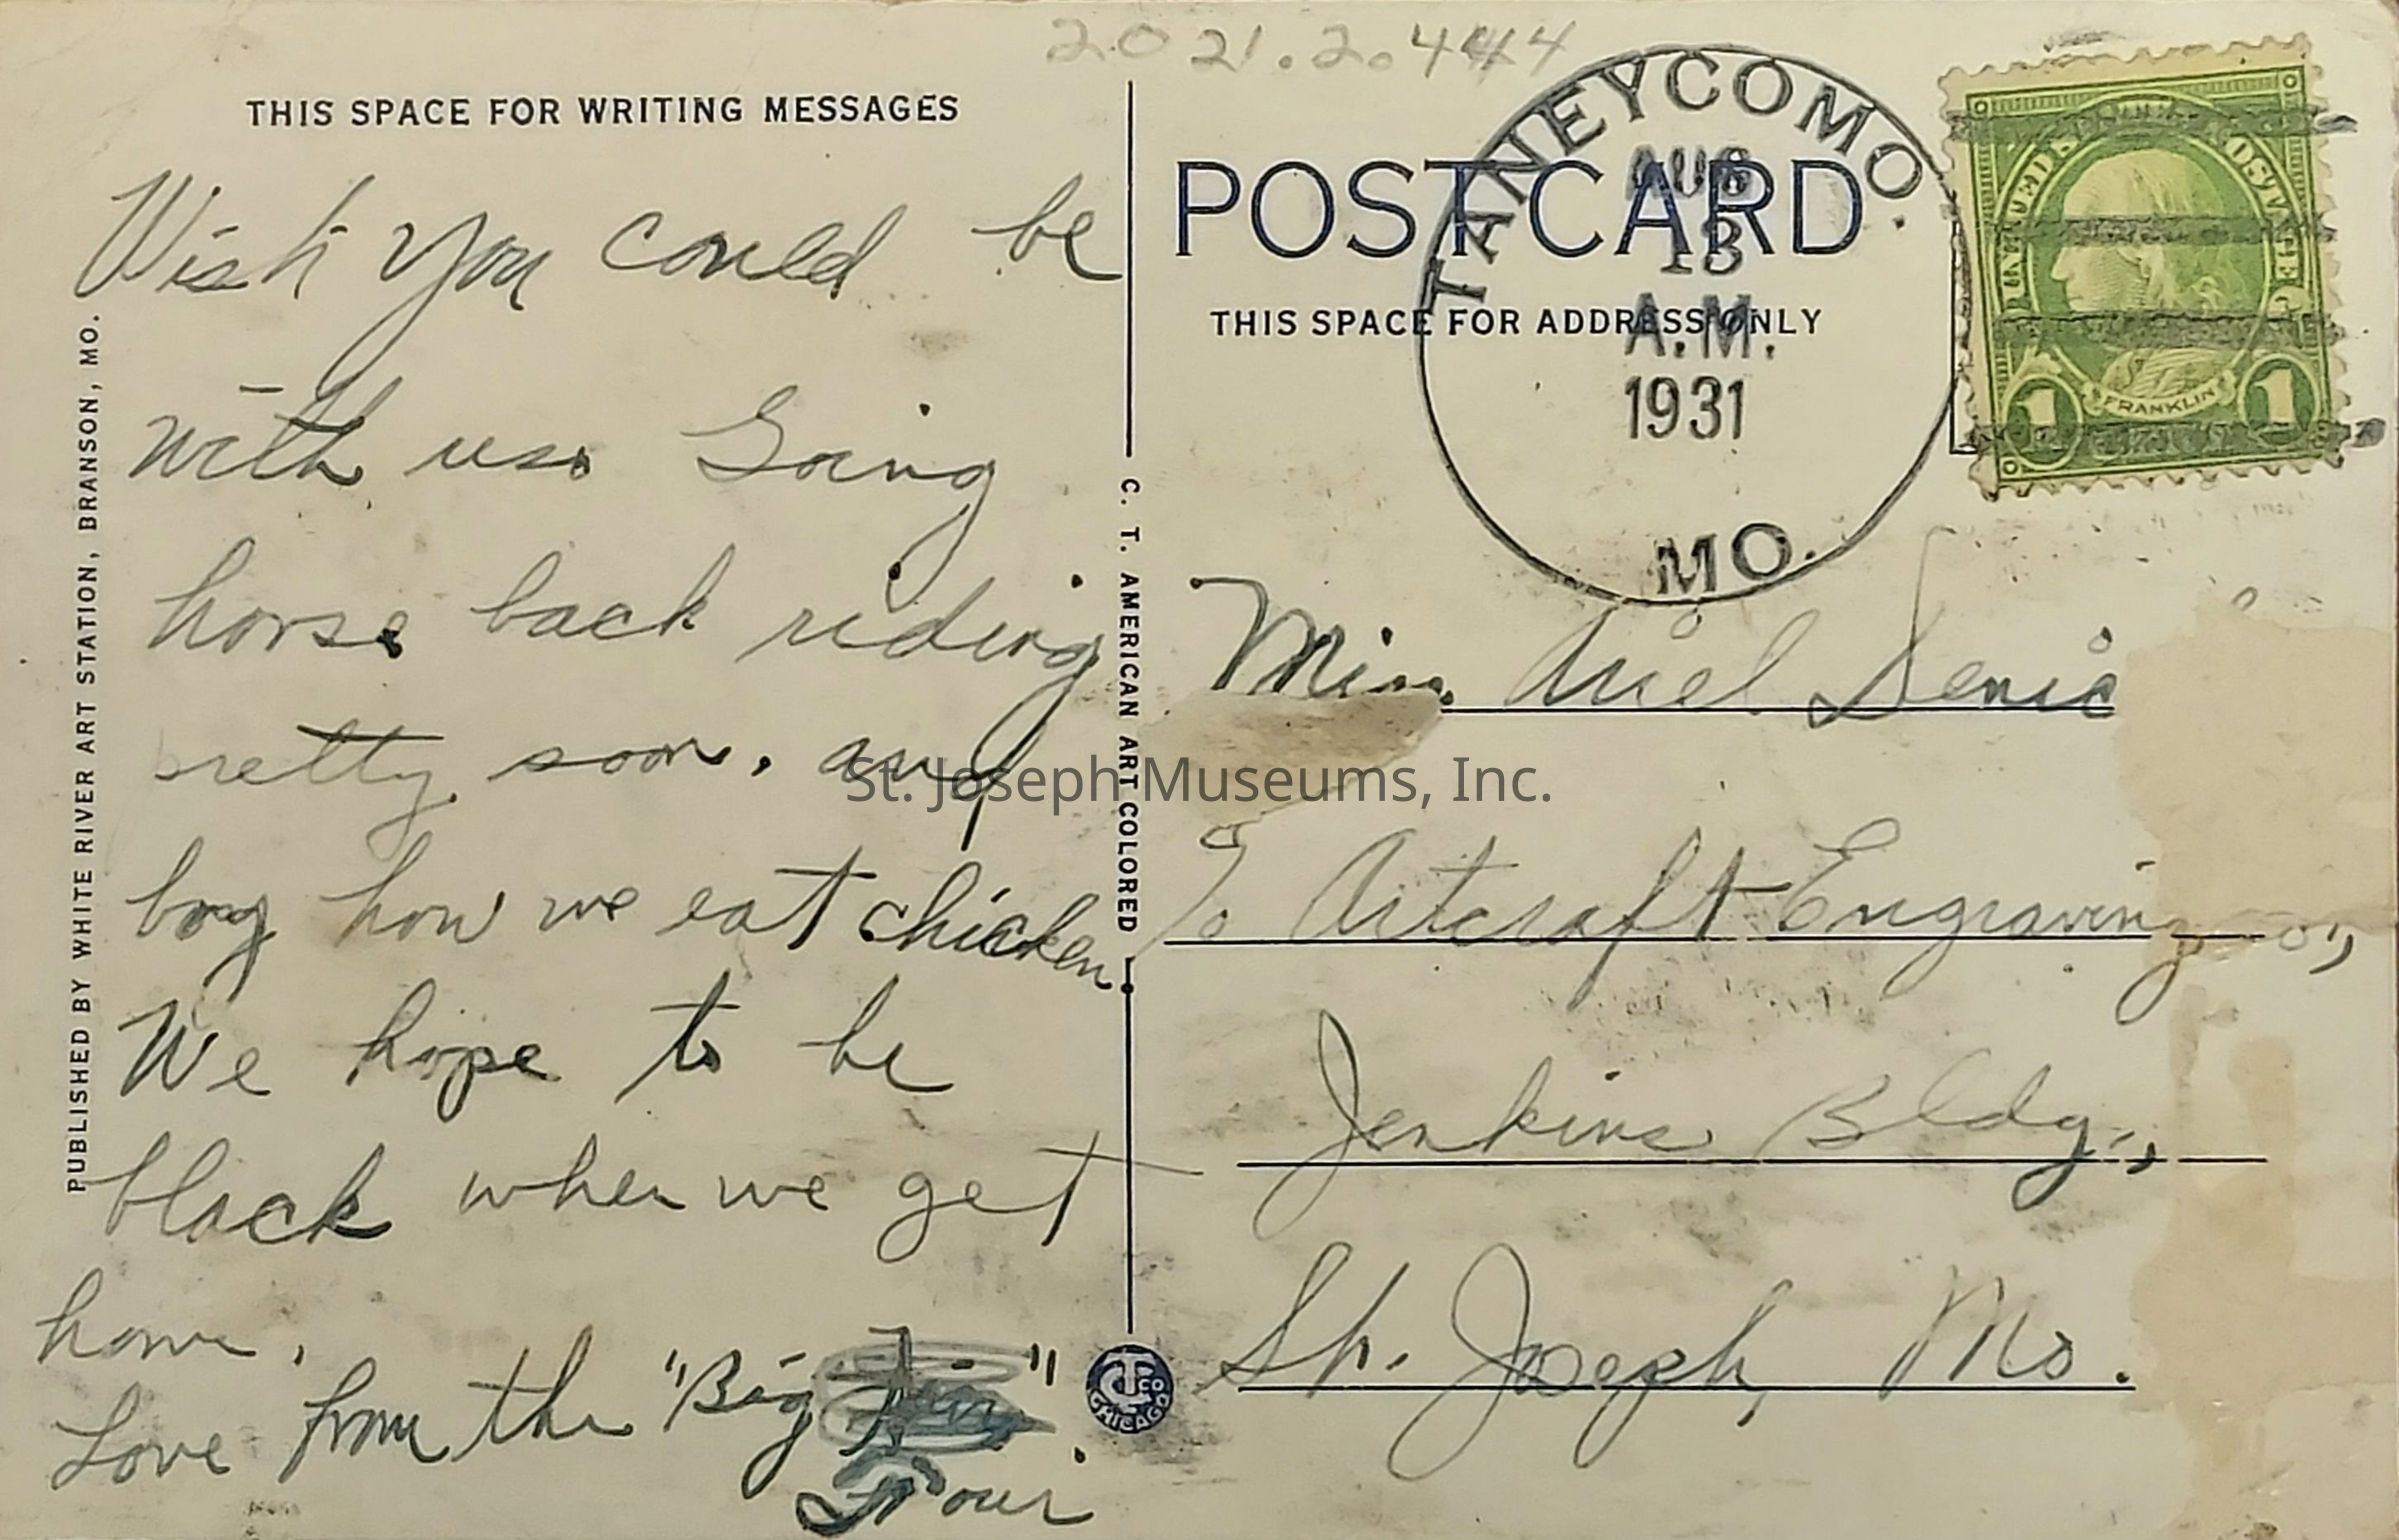 2021.2.444
THIS SPACE FOR WRITING MESSAGES
Wish you could be
with us. Going
horse back riding
pretty soon. and
boy how we eat chicken.
We hope to be
black when we get
home.
Love from the "Big "
Four.
PUBLISHED BY WHITE RIVER ART STATION, BRANSON, MO.
C. T. AMERICAN ART COLORED
C.T. CO. CHICAGO
POST CARD
THIS SPACE FOR ADDRESS ONLY
TANEYCOMO.
AUG
13
A.M.
1931
MO.
UNITED STATES POSTAGE
FRANKLIN
1 1
Miss
To Artcraft Engraving Co.,
Jenkins Bldg.,
St. Joseph, Mo.
St. Joseph Museums, Inc.